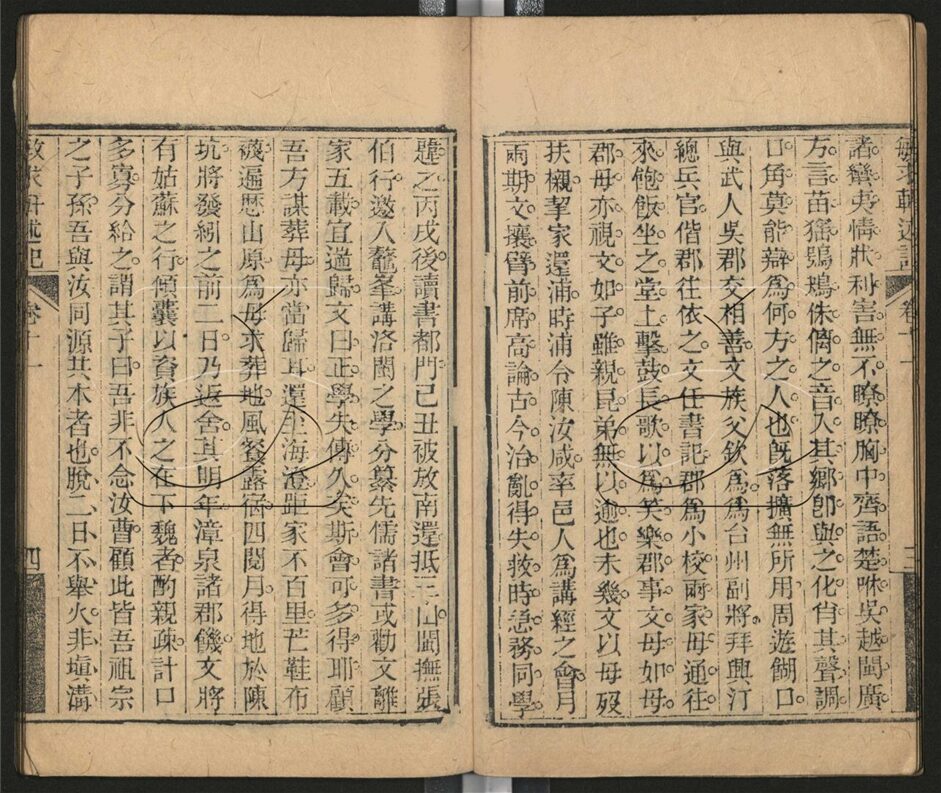 敏求軒述記 卷十一 三
諸蠻夷情狀利害無不瞭瞭胸中齊語楚咻吳越閩廣
方言苗猺鴞鴂侏𠌯之音入其鄉卽與之化肖其聲調
口角莫能辯為何方之人也旣落擴無所用周遊餬口
與武人吳郡交相善文族父欽為為台州副將拜興汀
總兵官偕郡往依之文任書記郡為小校兩家母通往
來飽飯坐之堂上擊鼓長歌以為笑樂郡事文母如母
郡母亦視文如子雖親昆弟無以逾也未幾文以母歿
扶櫬挈家還浦時浦令陳汝咸率邑人為講經之會月
兩期文攘臂前席高論古今治亂得失救時急務同學
韙之丙戌後讀書都門己丑被放南還抵三山閩撫張
伯行邀入鼇峯講洛閩之學分纂先儒諸書或勸文離
家五載宜遄歸文曰正學失傳久矣斯會可多得耶顧
吾方謀葬母亦當歸耳還至海澄距家不百里芒鞋布
襪遍歷山原為母求葬地風餐露宿四閱月得地於陳
坑將發紖之前二日乃返舍其明年漳泉諸郡饑文將
有姑蘇之行傾囊以資族人之在下魏者酌親疎計口
多寡分給之謂其子曰吾非不念汝曹顧此皆吾祖宗
之子孫吾與汝同源共本者也脫二日不舉火非塡溝
敏求軒述記 卷十一 四